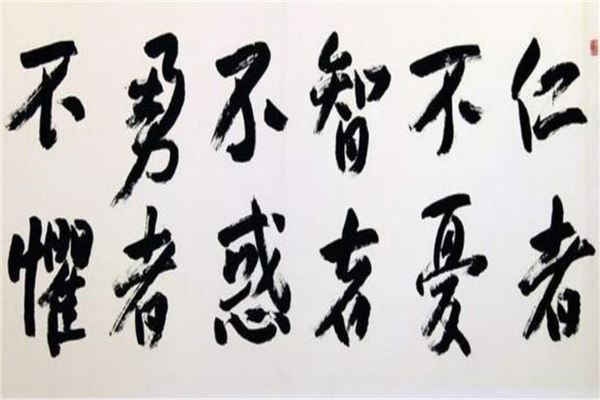 仁者
不憂
智者
不惑
勇者
不懼